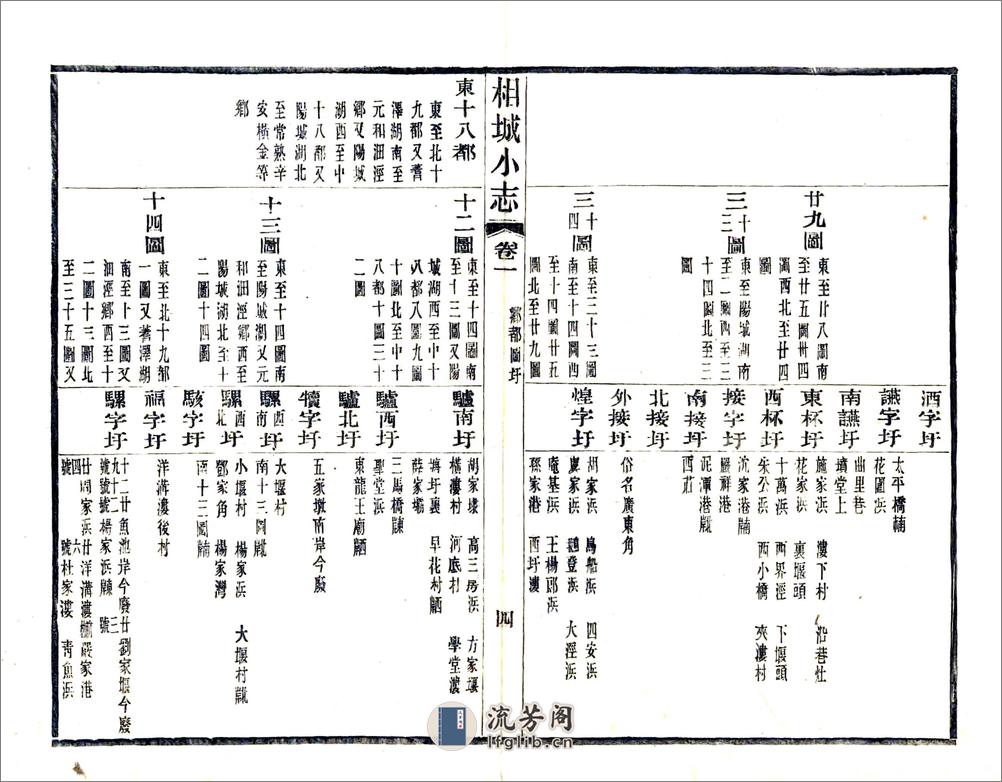 廿九圖
東至廿八圖南
至廿五圖廿四
圖西北至廿四
圖
三十三圖
東至陽城湖南
至二圖西至三
十四圖北至三
圖
三十四圖
東至三十三圖
南至十四圖西
至十四圖廿五
圖北至廿九圖
酒字圩
讌字圩
太平橋輔
花區浜
南讌圩
曲里巷
墳堂上
東杯圩
施家浜 濩下村 沿巷灶
花家浜 裏堰頭
西杯圩
十萬浜 西界涇 下堰頭
朱公浜 西小橋 夾濩村
接字圩
沈家港輔
嚴祥港
南接圩
泥潭港
西莊
北接圩
外接圩
俗名廣東角
煌字圩
胡家浜 鳥船浜 四安浜
盧家浜 鵝登浜
庵基浜 王楊邱浜 大涇浜
孫家港 西圩濩
相城小志
卷一
鄉都圖圩
四
東十八都
東至北十
九都又蓍
澤湖南至
元和洄涇
鄉又陽城
湖西至中
十八都又
陽城湖北
至常熟辛
安橫金等
鄉
十二圖
東至十四圖南
至十三圖又陽
城湖西至中十
八都十八圖九圖
十圖北至中十
八都十圖三十
二圖
十三圖
東至十四圖南
至陽城湖又元
和洄涇鄉西至
陽城湖北至十
二圖十四圖
十四圖
東至北十九都
一圖又蓍澤湖
南至十三圖又
洄涇鄉西至十
二圖十三圖北
至三十五圖又
驢南圩
胡家壋 高三房浜 方家堰
橫濩村 河底村 學堂濩
塼圩裏 早花村
薛家壩
驢西圩
三馬橋
聖堂浜
驢北圩
東龍王廟
犢字圩
五家墩南岸今廢
騾西南圩
大堰村
南十三圖
騾西北圩
小堰村 楊家浜 大堰村
鄧家角 楊家灣
駭字圩
南十三圖輔
福字圩
洋溝濩後村
騾字圩
十二廿魚池岸今廢廿劉家堰今廢
九十二 號楊家浜 三
廿周家浜廿洋溝濩 嚴家港
號 四 六 號杜家濩 青魚浜
流芳阁
lfglib.cn